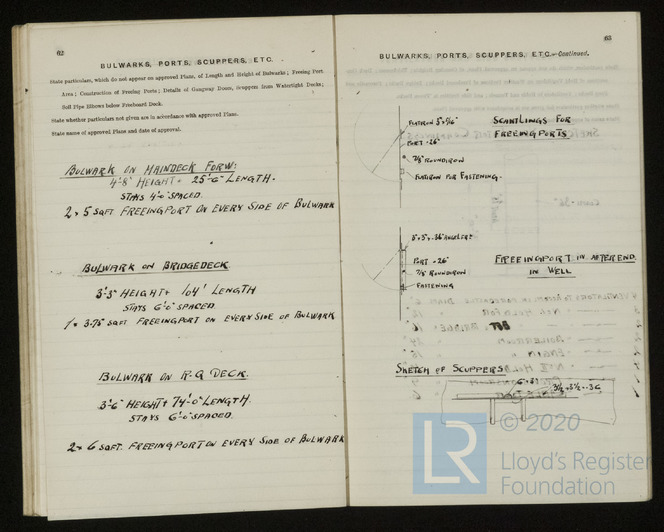 62
BULWARKS, PORTS, SCUPPERS, ETC.
State particulars, which do not appear on approved Plans, of Length and Height of Bulwarks; Freeing Port
Area; Construction of Freeing Ports; Details of Gangway Doors, Scuppers from Watertight Decks;
Soil Pipe Elbows below Freeboard Deck.
State whether particulars not given are in accordance with approved Plans.
State name of approved Plans and date of approval.
BULWARK ON MAINDECK FORW:
4'-8" HEIGHT × 25'-6" LENGTH.
STAYS 4'-0" SPACED.
2 × 5 SQFT FREEINGPORT ON EVERY SIDE OF BULWARK
BULWARK ON BRIDGEDECK
3'-3" HEIGHT × 104' LENGTH
STAYS 6'-0" SPACED.
1 × 3.75 SQFT FREEINGPORT ON EVERY SIDE OF BULWARK
BULWARK ON R-Q DECK.
3'-6" HEIGHT × 74'-0" LENGTH.
STAYS 6'-0" SPACED.
2 × 6 SQFT. FREEINGPORT ON EVERY SIDE OF BULWARK
63
BULWARKS, PORTS, SCUPPERS, ETC.—Continued.
FLATIRON 5 × 7/16"
PORT .26"
7/8" ROUNDIRON
FLATIRON FOR FASTENING.
SCANTLINGS FOR
FREEINGPORTS
5" × 5" × .36 ANGLE
PORT .26"
7/8" ROUNDIRON
FASTENING
FREEINGPORT IN AFTER END
IN WELL
SKETCH OF SCUPPERS
3½ × 3½ × .36
© 2020
LR
Lloyd's Register
Foundation